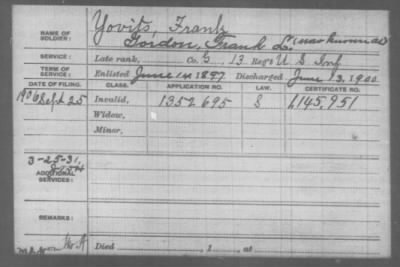 NAME OF SOLDIER: Yovits, Frank
Gordon, Frank L. (now known as)
SERVICE: Late rank, Co. G, 13 Reg't U S Inf
TERM OF SERVICE: Enlisted June 14 1897 Discharged June 13, 1900
DATE OF FILING. CLASS. APPLICATION NO. LAW. CERTIFICATE NO.
1906 Sept 25 Invalid, 1352695 S
Widow,
Minor,
3-25-31,
ADDITIONAL SERVICES:
REMARKS:
Died , 1 , at